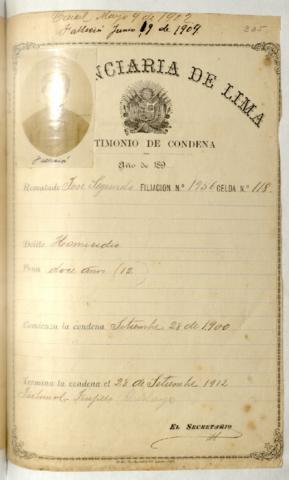 Mayo 9 de 1902
Falleció Junio 19 de 1909
205
NCIARIA DE LIMA
TIMONIO DE CONDENA
Año de 189
Rematado José Segundo FILIACION N.° 1956 CELDA N.° 118
Delito Homicidio
Pena doce años (12
Comienza la condena Setiembre 28 de 1900
Termina la condena el 28 de Setiembre 1912
Trujillo
EL SECRETARIO
Falleció